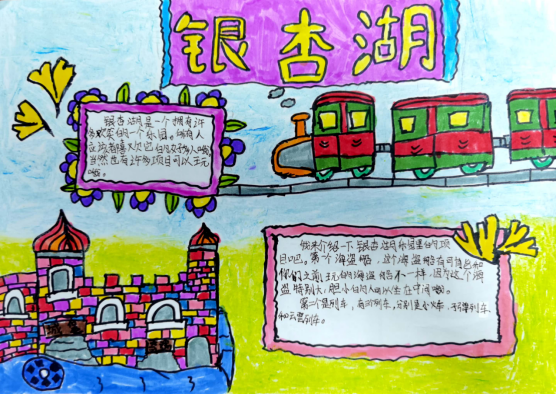 银杏湖
银杏湖是一个拥有许
多欢笑的一个乐园。每有人
在没着喜欢它的欢场人哦
当然也有许多项目可以玩
哦。
我来介绍一下银杏湖乐园里的项
目吧。第一个海盗船，这个海盗船有可能和
你们之前玩的海盗船不一样，因为这个海
盗特别大，胆小的人可以坐在中间哦。
第二个是列车，有的列车，分别是小火车、子弹列车、
和云霄列车。